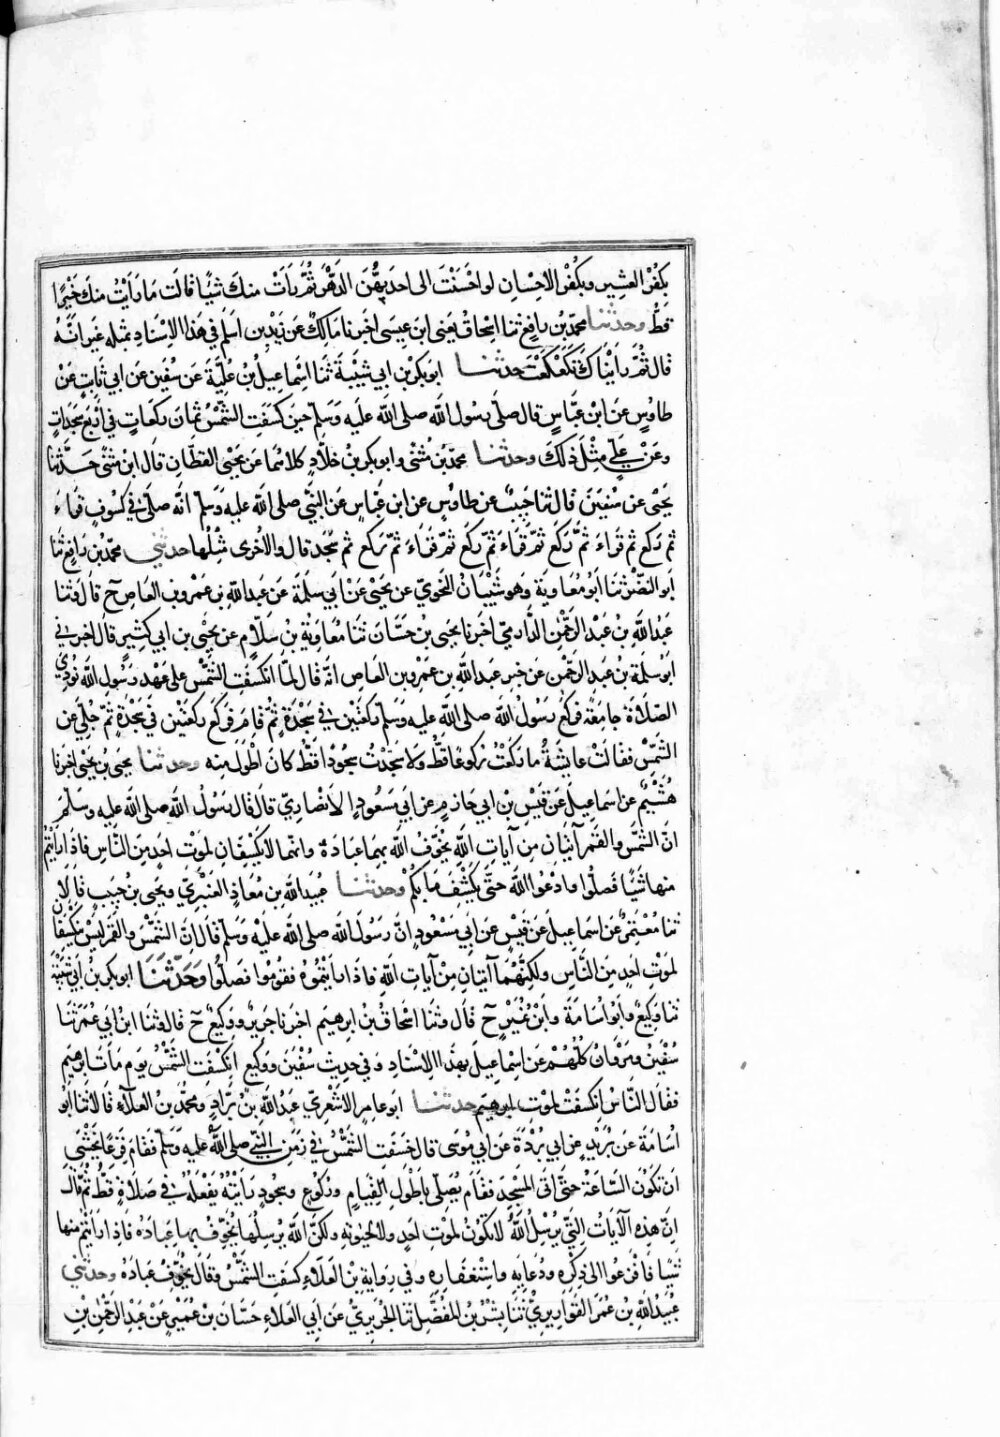 بكفر العشير وبكفر الاحسان لو احسنت الى احديهن الدهر ثم رأت منك شيئا قالت ما رأيت منك خيرا
قط وحدثنا محمد بن رافع ثنا اسحاق يعني ابن عيسى اخبرنا مالك عن زيد بن اسلم في هذا الاسناد بمثله غير انه
قال ثم رايناك تكعكعت حدثنا ابو بكر بن ابي شيبة ثنا اسماعيل بن علية عن سفين عن ابي ثابت عن
طاوس عن ابن عباس قال صلى رسول الله صلى الله عليه وسلم حين كسفت الشمس ثمان ركعات في أربع سجدات
وعن علي مثل ذلك وحدثنا محمد بن مثنى وابو بكر بن خلاد كلاهما عن يحيى القطان قال ابن مثنى حدثنا
يحيى عن سفين قال ثنا حبيب عن طاوس عن ابن عباس عن النبي صلى الله عليه وسلم انه صلى في كسوف قراء
ثم ركع ثم قراء ثم ركع ثم قراء ثم ركع ثم قراء ثم ركع ثم سجد قال والاخرى مثلها حدثني محمد بن رافع ثنا
ابو النضر ثنا ابو معاوية وهو شيبان النحوي عن يحيى عن أبي سلمة عن عبد الله بن عمرو بن العاص ح قال وثنا
عبد الله بن عبد الرحمن الدارمي اخبرنا يحيى بن حسان ثنا معاوية بن سلام عن يحيى بن ابي كثير قال اخبرني
ابو سلمة بن عبد الرحمن عن خبر عبد الله بن عمرو بن العاص انه قال لما انكسفت الشمس على عهد رسول الله نودي
الصلاة جامعة فركع رسول الله صلى الله عليه وسلم ركعتين في سجدة ثم قام فركع ركعتين في سجدة ثم جلي عن
الشمس فقالت عايشة ما ركعت ركوعا قط ولا سجدت سجودا قط كان اطول منه وحدثنا يحيى بن يحيى اخبرنا
هشيم عن اسماعيل عن قيس بن ابي حازم عن ابي مسعود الانصاري قال قال رسول الله صلى الله عليه وسلم
ان الشمس والقمر آيتان من آيات الله يخوف الله بهما عباده وانهما لا يكسفان لموت احد من الناس فاذا رأيتم
منها شيئا فصلوا وادعوا الله حتى يكشف ما بكم وحدثنا عبيد الله بن معاذ العنبري ويحيى بن حبيب قالا
ثنا معتمر عن اسماعيل عن قيس عن ابي مسعود ان رسول الله صلى الله عليه وسلم قال ان الشمس والقمر ليس ينكسفان
لموت احد من الناس ولكنهما آيتان من آيات الله فاذا رأيتموه فقوموا فصلوا وحدثنا ابو بكر بن أبي شيبة
ثنا وكيع وأبو اسامة وابن نمير ح قال وثنا اسحاق بن ابرهيم اخبرنا جرير ووكيع ح قال وثنا ابن ابي عمر ثنا
سفين ومروان كلهم عن اسماعيل بهذا الاسناد وفي حديث سفين ووكيع انكسفت الشمس يوم مات ابرهيم
فقال الناس انكسفت لموت ابرهيم حدثنا ابو عامر الاشعري عبد الله بن براد ومحمد بن العلاء قالا ثنا ابو
اسامة عن بريد عن ابي بردة عن ابي موسى قال خسفت الشمس في زمن النبي صلى الله عليه وسلم فقام فزعا يخشى
ان تكون الساعة حتى اتى المسجد فقام يصلي باطول القيام وركوع وسجود رايته يفعله في صلاة قط ثم قال
ان هذه الآيات التي يرسل الله لا تكون لموت احد ولا لحيوته ولكن الله يرسلها يخوف بها عباده فاذا رأيتم منها
شيئا فافزعوا الى ذكره ودعايه واستغفاره وفي رواية بن العلاء كسفت الشمس وقال يخوف عباده وحدثني
عبيد الله بن عمر القواريري ثنا بشر بن المفضل ثنا الجريري عن ابي العلاء حسان بن عمير عن عبد الرحمن بن